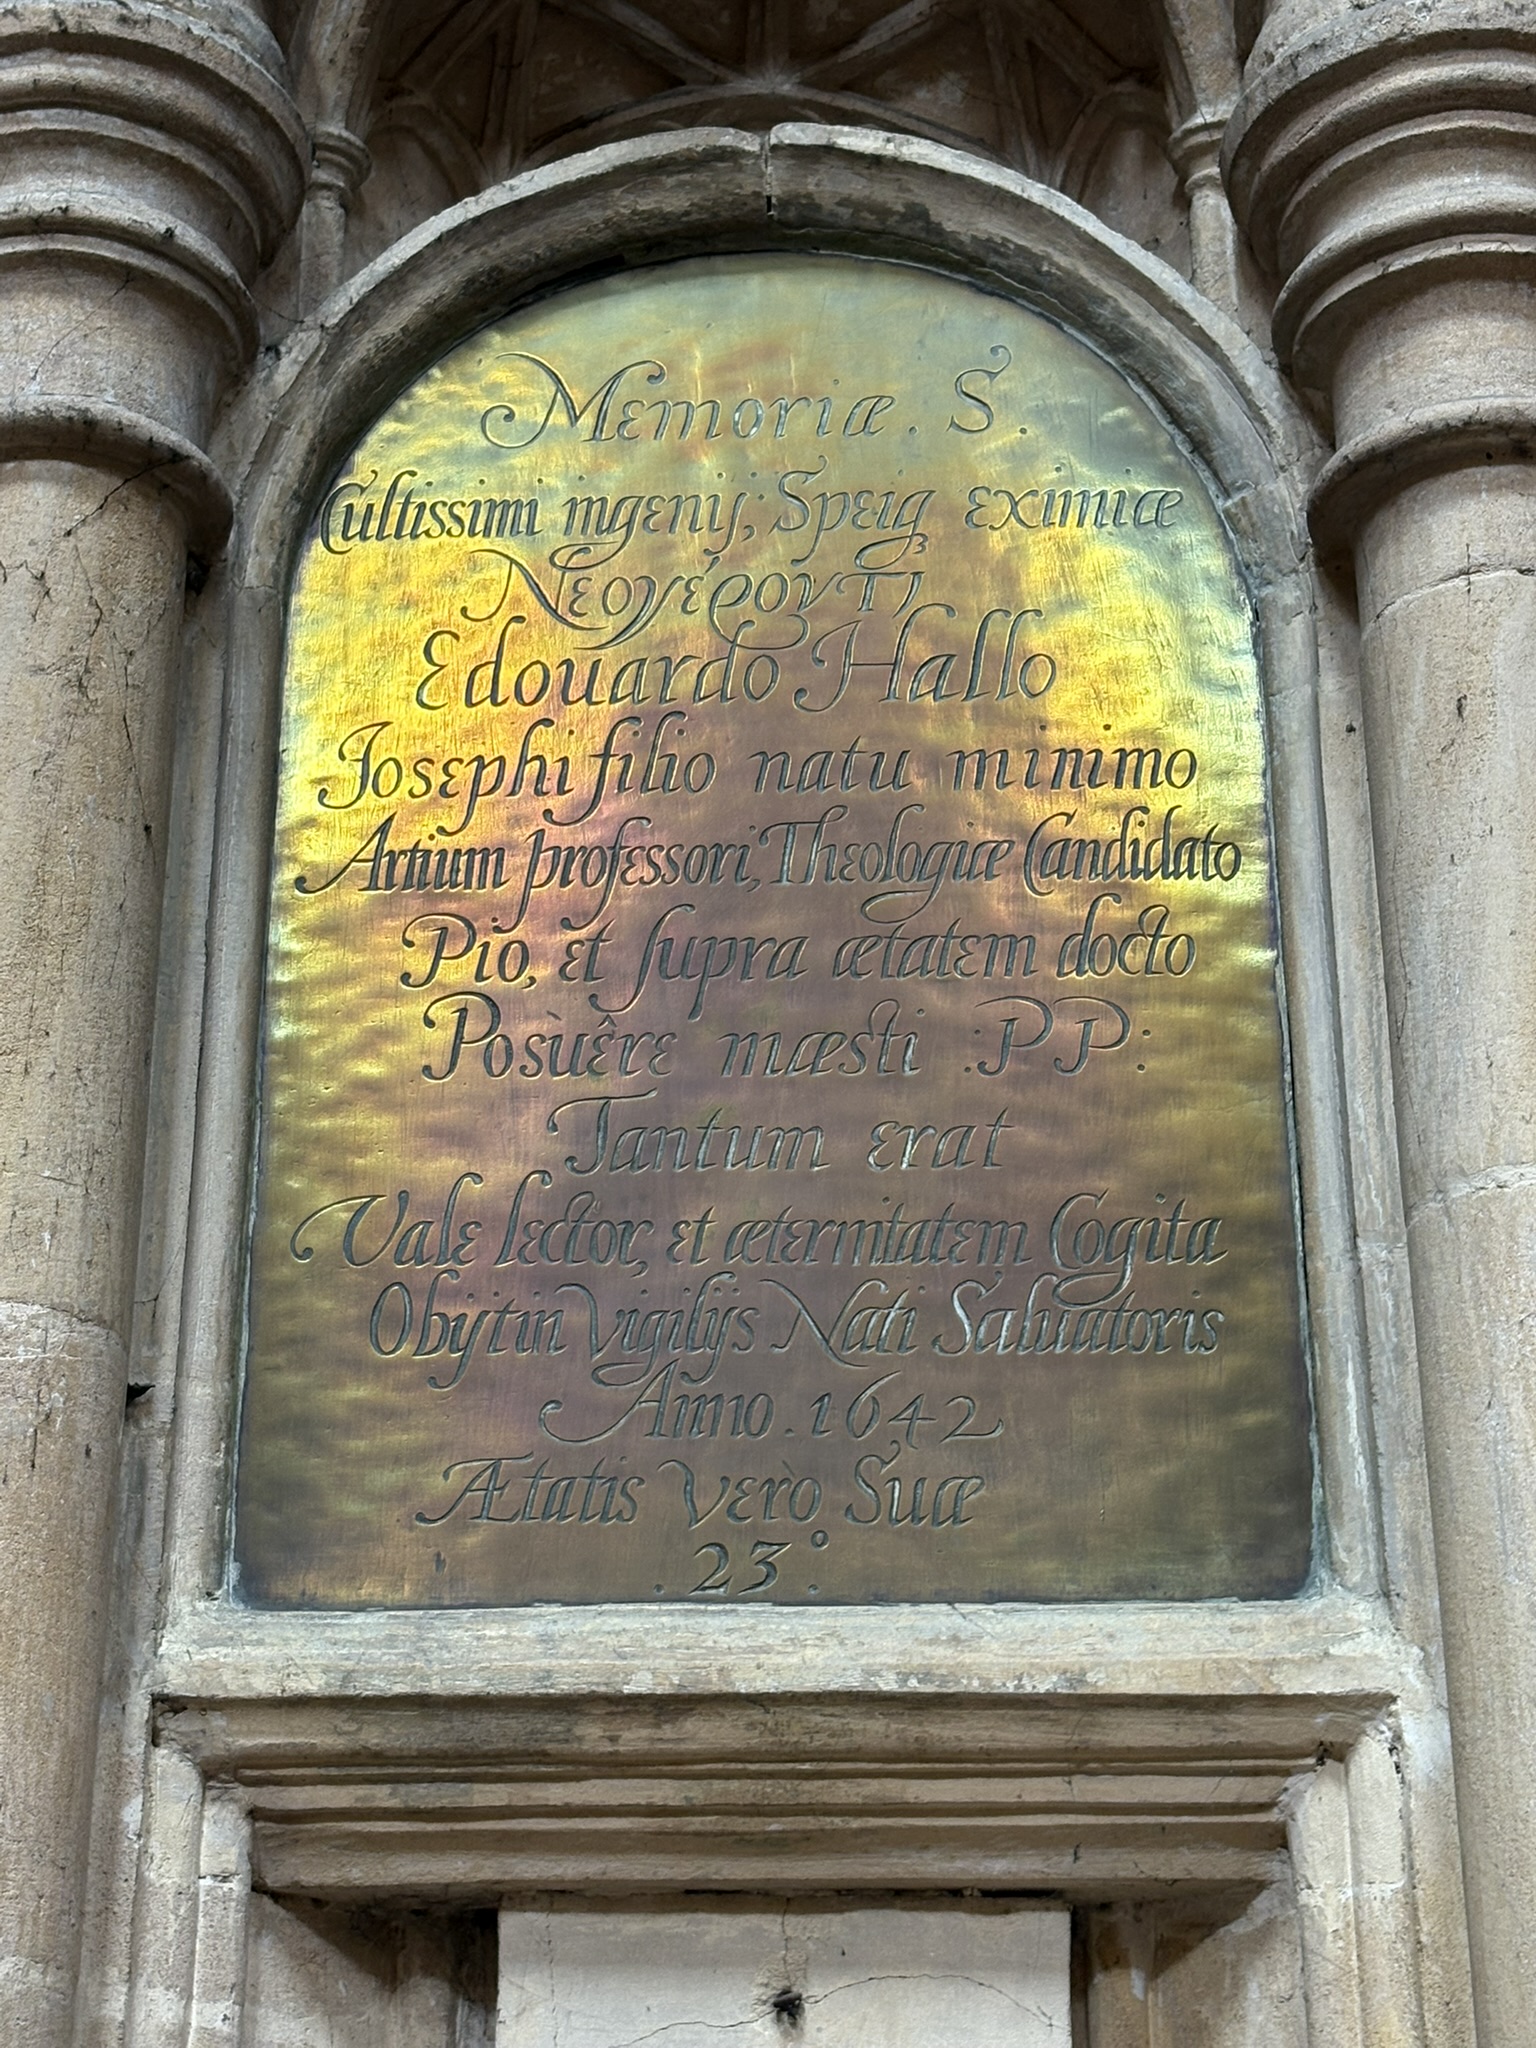 Memoriæ . S .
Cultissimi ingenij; Speiqꝫ eximiæ
Νεογέροντι
Edouardo Hallo
Josephi filio natu minimo
Artium professori, Theologiæ Candidato
Pio, et supra ætatem docto
Posùêre mæsti :PP:
Tantum erat
Vale lector, et æternitatem Cogita
Obijt in vigilijs Nati Saluatoris
Anno . 1642
Ætatis verò Suæ
. 23° .